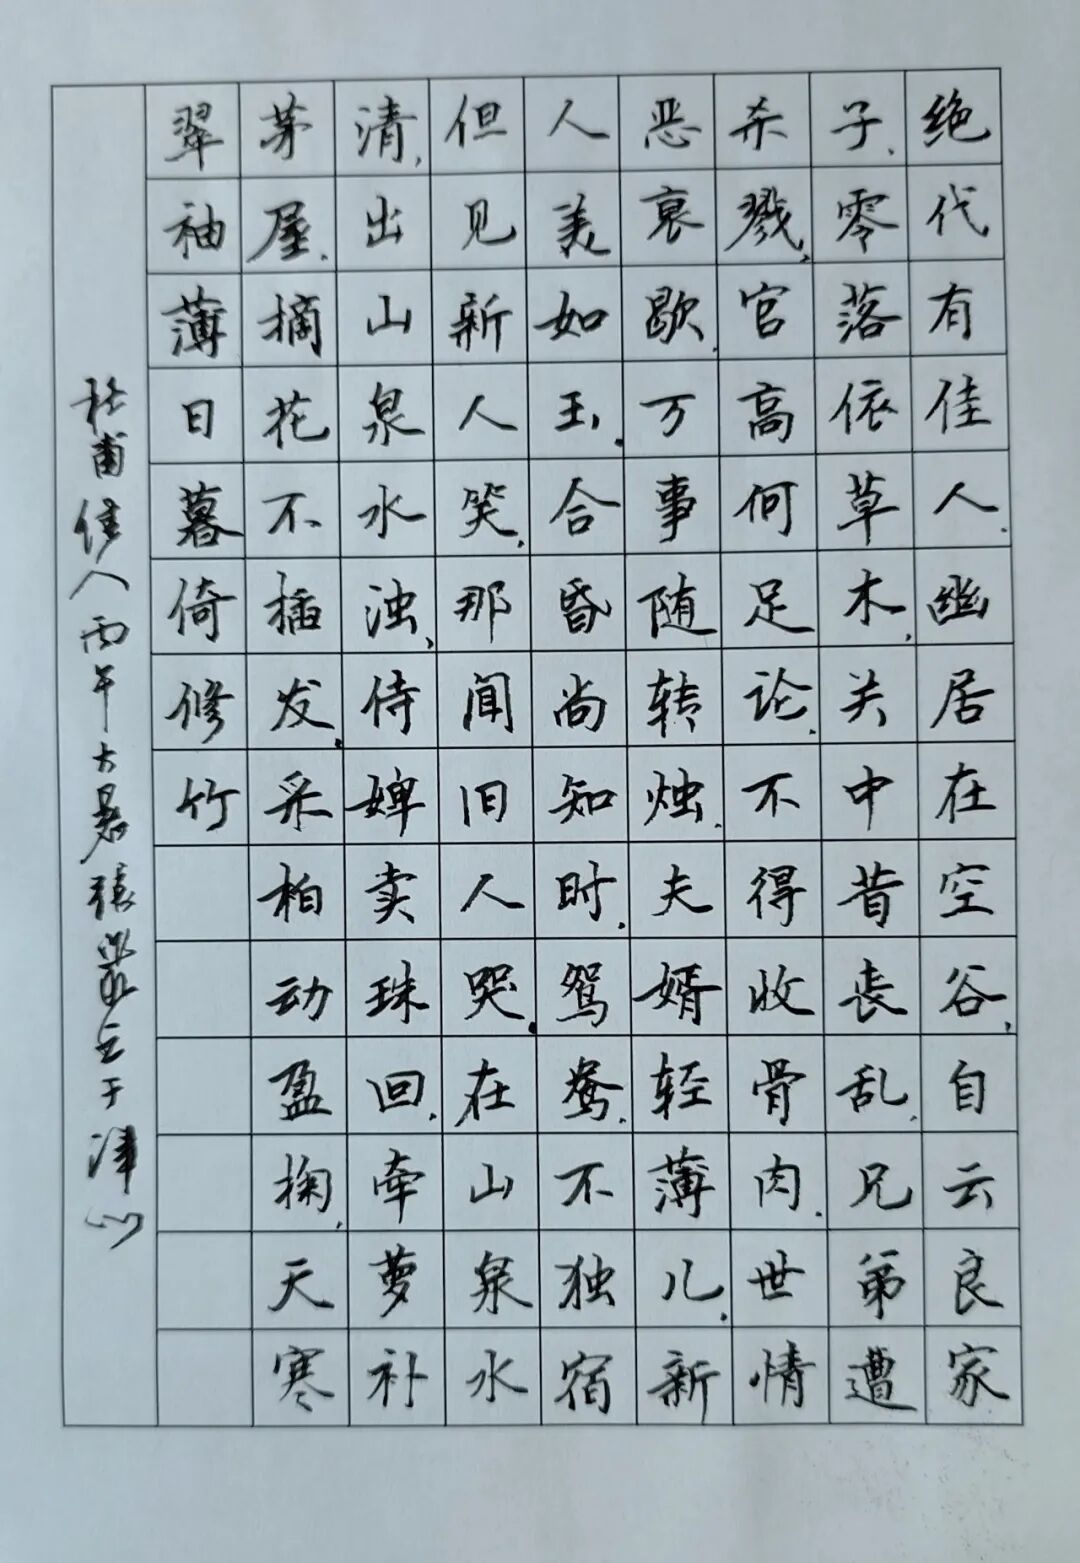 绝代有佳人.幽居在空谷,自云良家
子.零落依草木,关中昔丧乱.兄弟遭
杀戮,官高何足论.不得收骨肉.世情
恶衰歇.万事随转烛.夫婿轻薄儿.新
人美如玉.合昏尚知时.鸳鸯.不独宿
但见新人笑,那闻旧人哭.在山泉水
清,出山泉水浊,侍婢卖珠回.牵萝补
茅屋.摘花不插发.采柏动盈掬.天寒
翠袖薄日暮倚修竹
杜甫佳人丙午大暑 于津